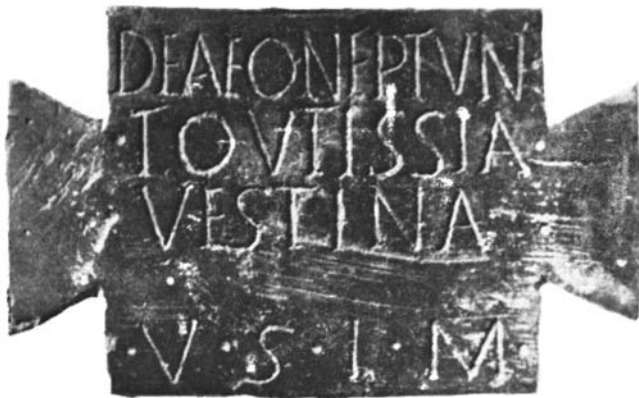 DEAEONEPTVN
TOVTISSIA
VESTINA
·V·S·L·M·